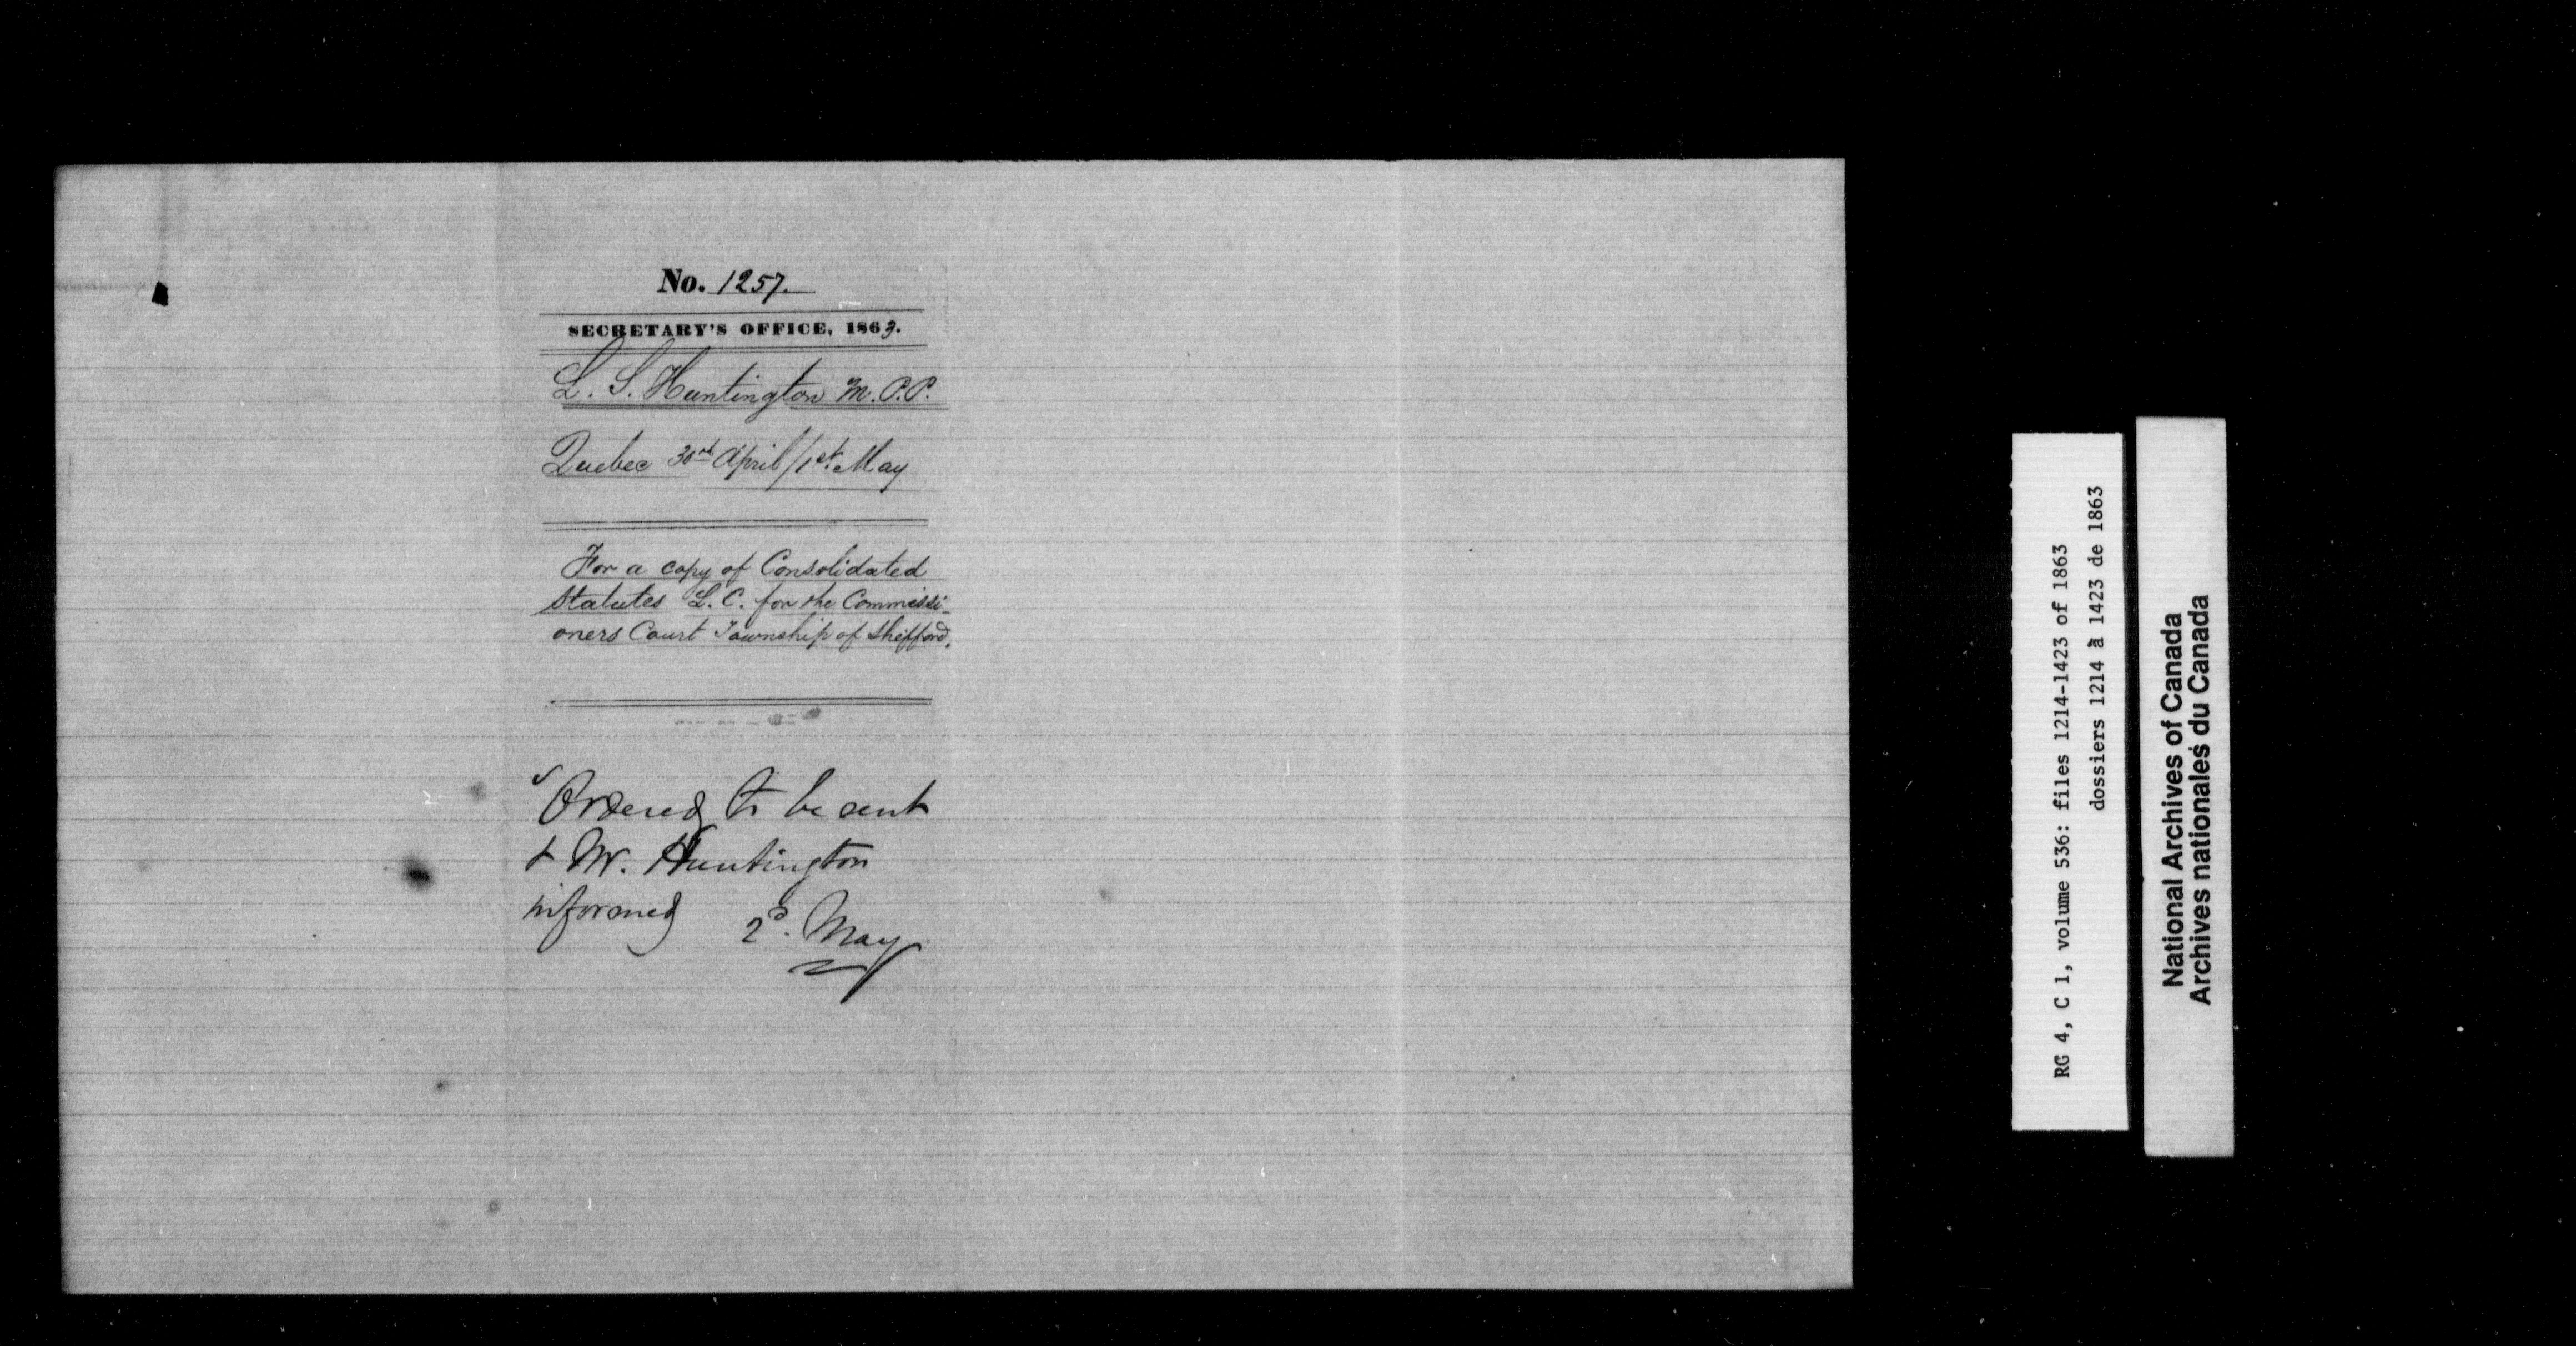 No. 1257.
SECRETARY'S OFFICE, 1863.
L. S. Huntington M.P.P.
Quebec 30th April/1st May
For a copy of Consolidated
Statutes L.C. for the Commissi-
oners Court Township of Shefford.
Ordered to be sent
& Mr. Huntington
informed 2d. May
RG 4, C 1, volume 536: files 1214-1423 of 1863
dossiers 1214 à 1423 de 1863
National Archives of Canada
Archives nationales du Canada